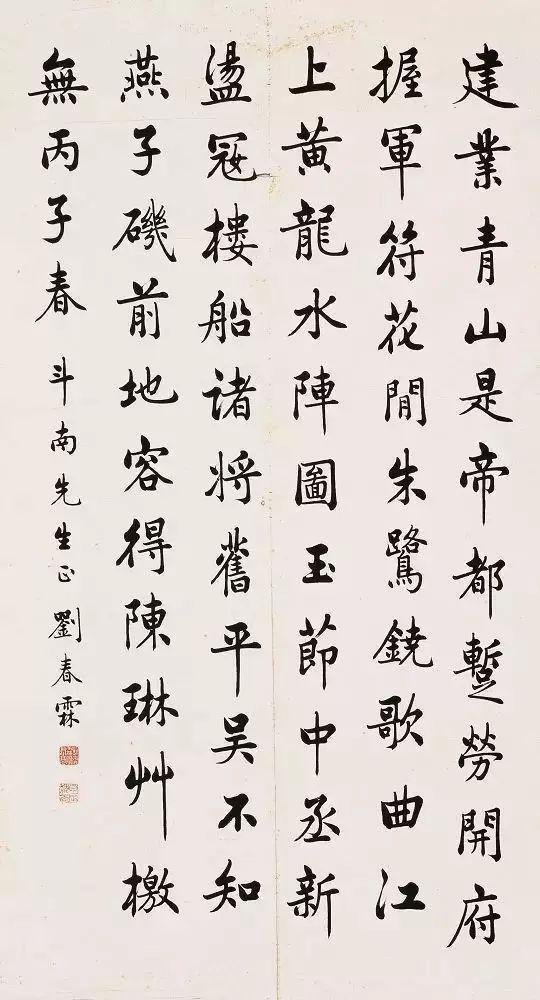 建業青山是帝都蹔勞開府
握軍符花間朱鷺鐃歌曲江
上黃龍水陣圖玉節中丞新
盪冦樓船諸將舊平吳不知
燕子磯前地容得陳琳艸檄
無丙子春 斗南先生正 劉春霖